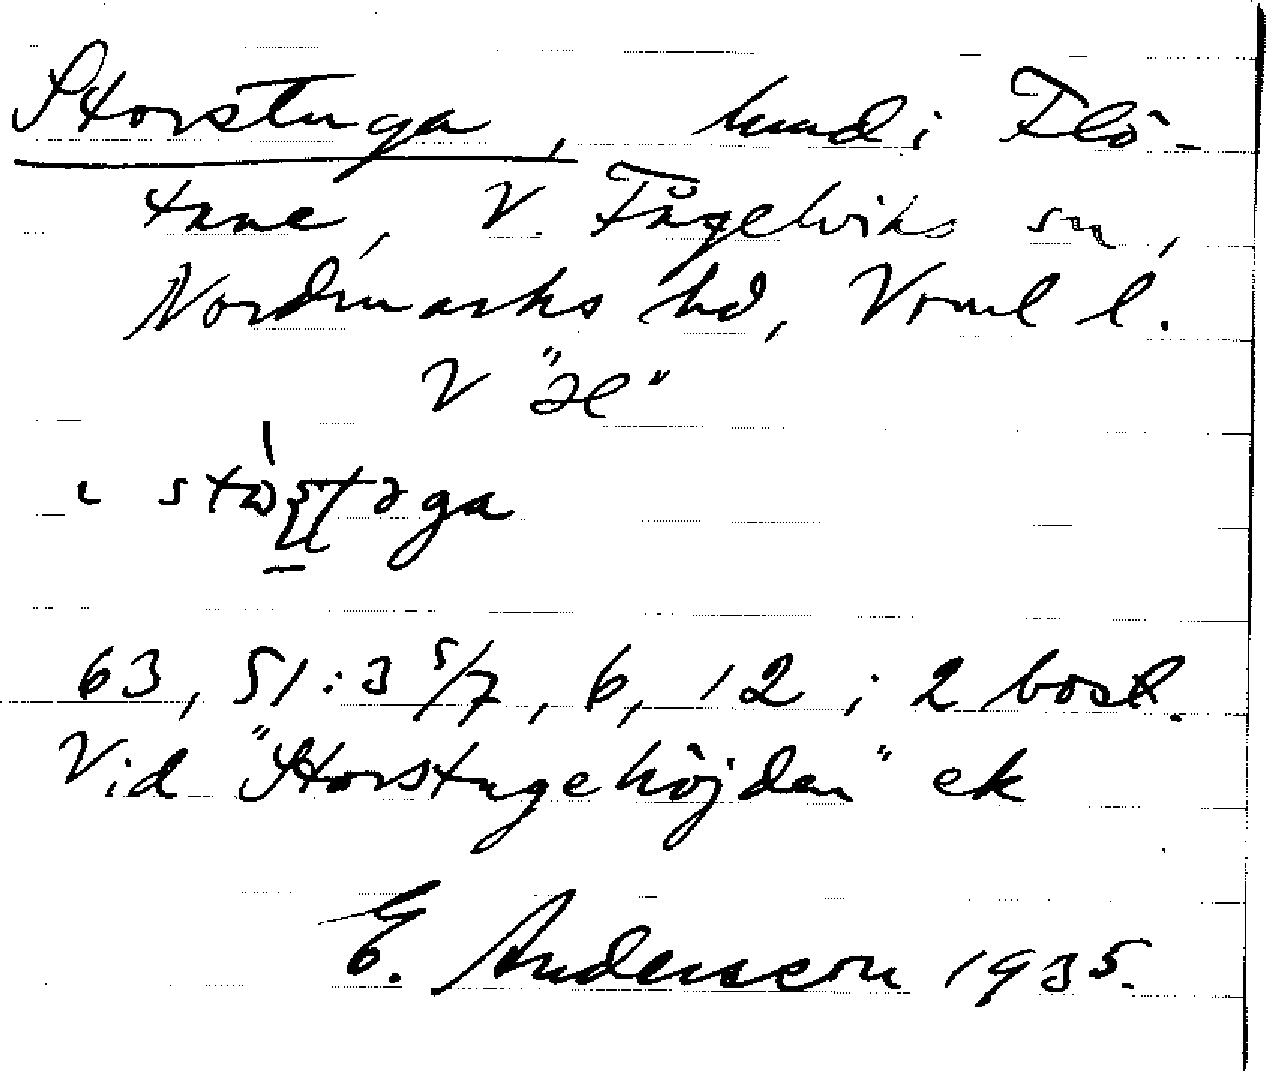 Storstuga, hmd i Flö-
tane, V. Fågelviks sn,
Nordmarks hd, Vrml l.
V "æ"
63, 51:3 5/7, 6, 12; 2 bost.
Vid "Storstugehöjden" ek
E. Andersson 1935.